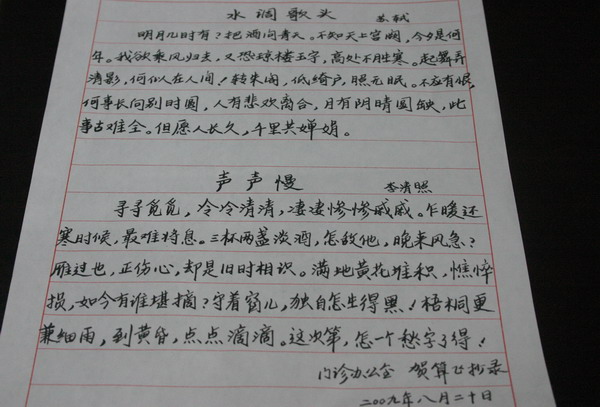 水调歌头 苏轼
明月几时有？把酒问青天。不知天上宫阙，今夕是何
年。我欲乘风归去，又恐琼楼玉宇，高处不胜寒。起舞弄
清影，何似在人间！转朱阁，低绮户，照无眠。不应有恨，
何事长向别时圆，人有悲欢离合，月有阴晴圆缺，此
事古难全。但愿人长久，千里共婵娟。
声声慢 李清照
寻寻觅觅，冷冷清清，凄凄惨惨戚戚。乍暖还
寒时候，最难将息。三杯两盏淡酒，怎敌他，晚来风急？
雁过也，正伤心，却是旧时相识。满地黄花堆积，憔悴
损，如今有谁堪摘？守着窗儿，独自怎生得黑！梧桐更
兼细雨，到黄昏，点点滴滴。这次第，怎一个愁字了得！
门诊办公室 贺算 抄录
二〇〇九年八月二十日